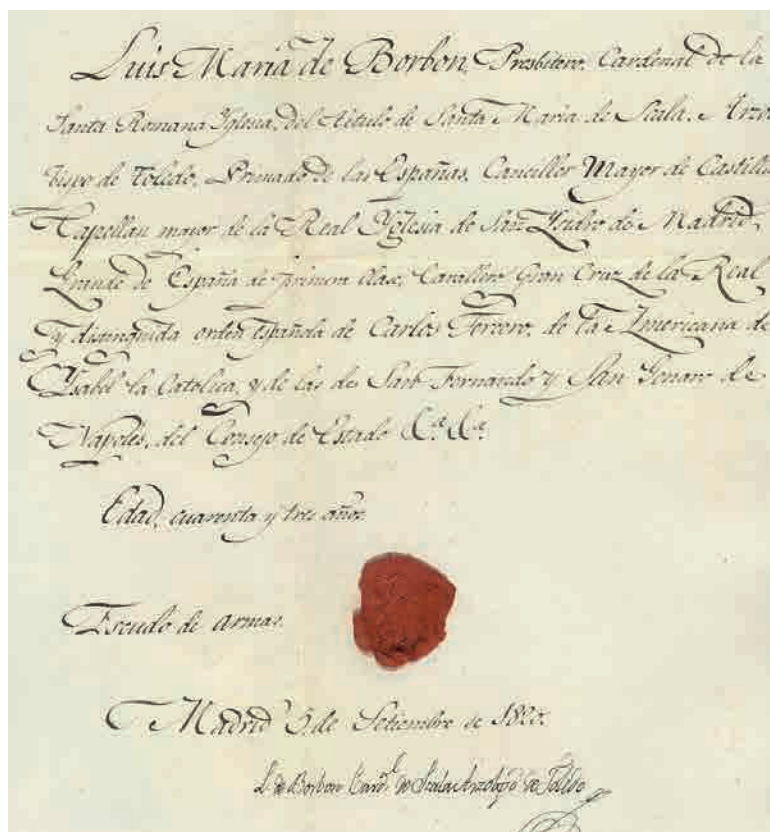 Luis Maria de Borbon, Presbitero, Cardenal de la
Santa Romana Yglesia, del título de Santa Maria de Scala, Arzo
bispo de Toledo, Primado de las Españas, Canciller Mayor de Castilla
Capellan mayor de la Real Yglesia de San Ysidro de Madrid,
Grande de España de primera clase, Cavallero Gran Cruz de la Real
y distinguida orden Española de Carlos Tercero, de la Americana de
Ysabel la Catolica, y de las de San Fernando y San Genaro de
Napoles, del Consejo de Estado &a. &a.
Edad, cuarenta y tres años.
Escudo de armas.
Madrid 5 de Setiembre de 1820.
L. de Borbon Card.l de Scala Arzobpo de Toledo